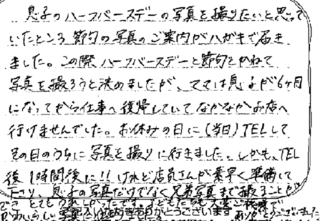 息子のハーフバースデーの写真を撮りたいと思って
いたところ節句の写真のご案内がハガキで届き
ました。この際ハーフバースデーと節句をかねて
写真を撮ろうと決めましたが、ママは息子が6ヶ月
になってから仕事へ復帰していてなかなかお店へ
行けませんでした。お休みの日に(当日)TELして
その日のうちに写真を撮りに行きました。しかも、TEL
後1時間後に!!けれど店員さんが素早く準備して
下さり、息子の写真だけでなく兄弟写真まで撮ることが